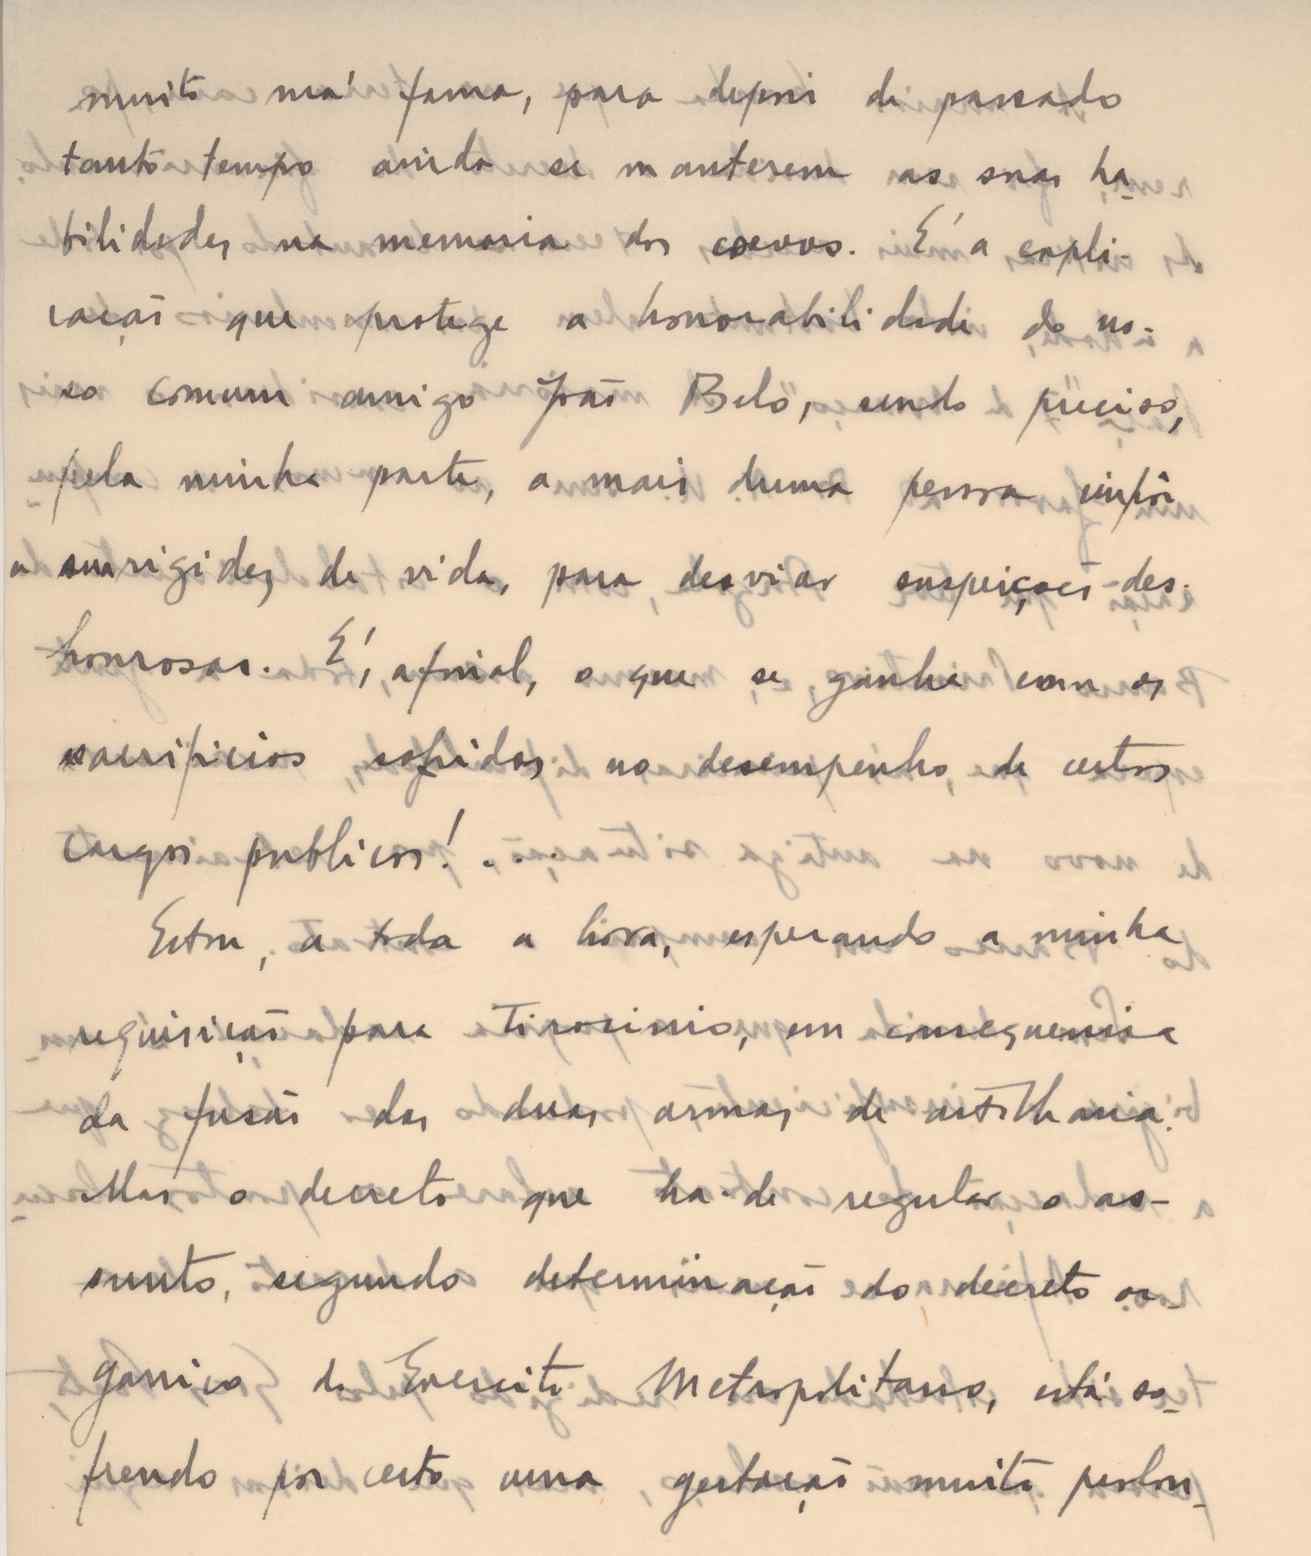 muito má fama, para depois de passado
tanto tempo ainda se manterem as suas ha-
bilidades na memoria dos coevos. É a expli-
cação que protege a honorabilidade do nos-
so comum amigo João Belo, sendo preciso,
pela minha parte, a mais duma pessoa impôr
a sua rigidez de vida, para desviar suspeições des-
honrosas. É, afinal, o que se ganha com os
sacrificios sofridos no desempenho de certos
cargos publicos! . . .
Estou, a toda a hora, esperando a minha
requisição para Tirocinio, em consequencia
da fusão das duas armas de artilharia.
Mas o decreto que ha-de regular o as-
sunto, segundo determinação do decreto or-
ganico do Exercito Metropolitano, está so-
frendo por certo uma gestação muito prolon-